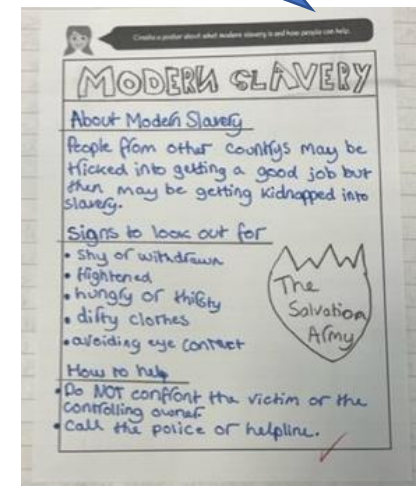 Create a poster about what modern slavery is and how people can help.
MODERN SLAVERY
About Modern Slavery
People from other countrys may be
tricked into getting a good job but
then may be getting kidnapped into
slavery.
Signs to look out for
• shy or withdrawn
• frightened
• hungry or thirsty
• dirty clothes
• avoiding eye contact
The
Salvation
Army
How to help
• Do NOT confront the victim or the
controlling owner.
• Call the police or helpline.